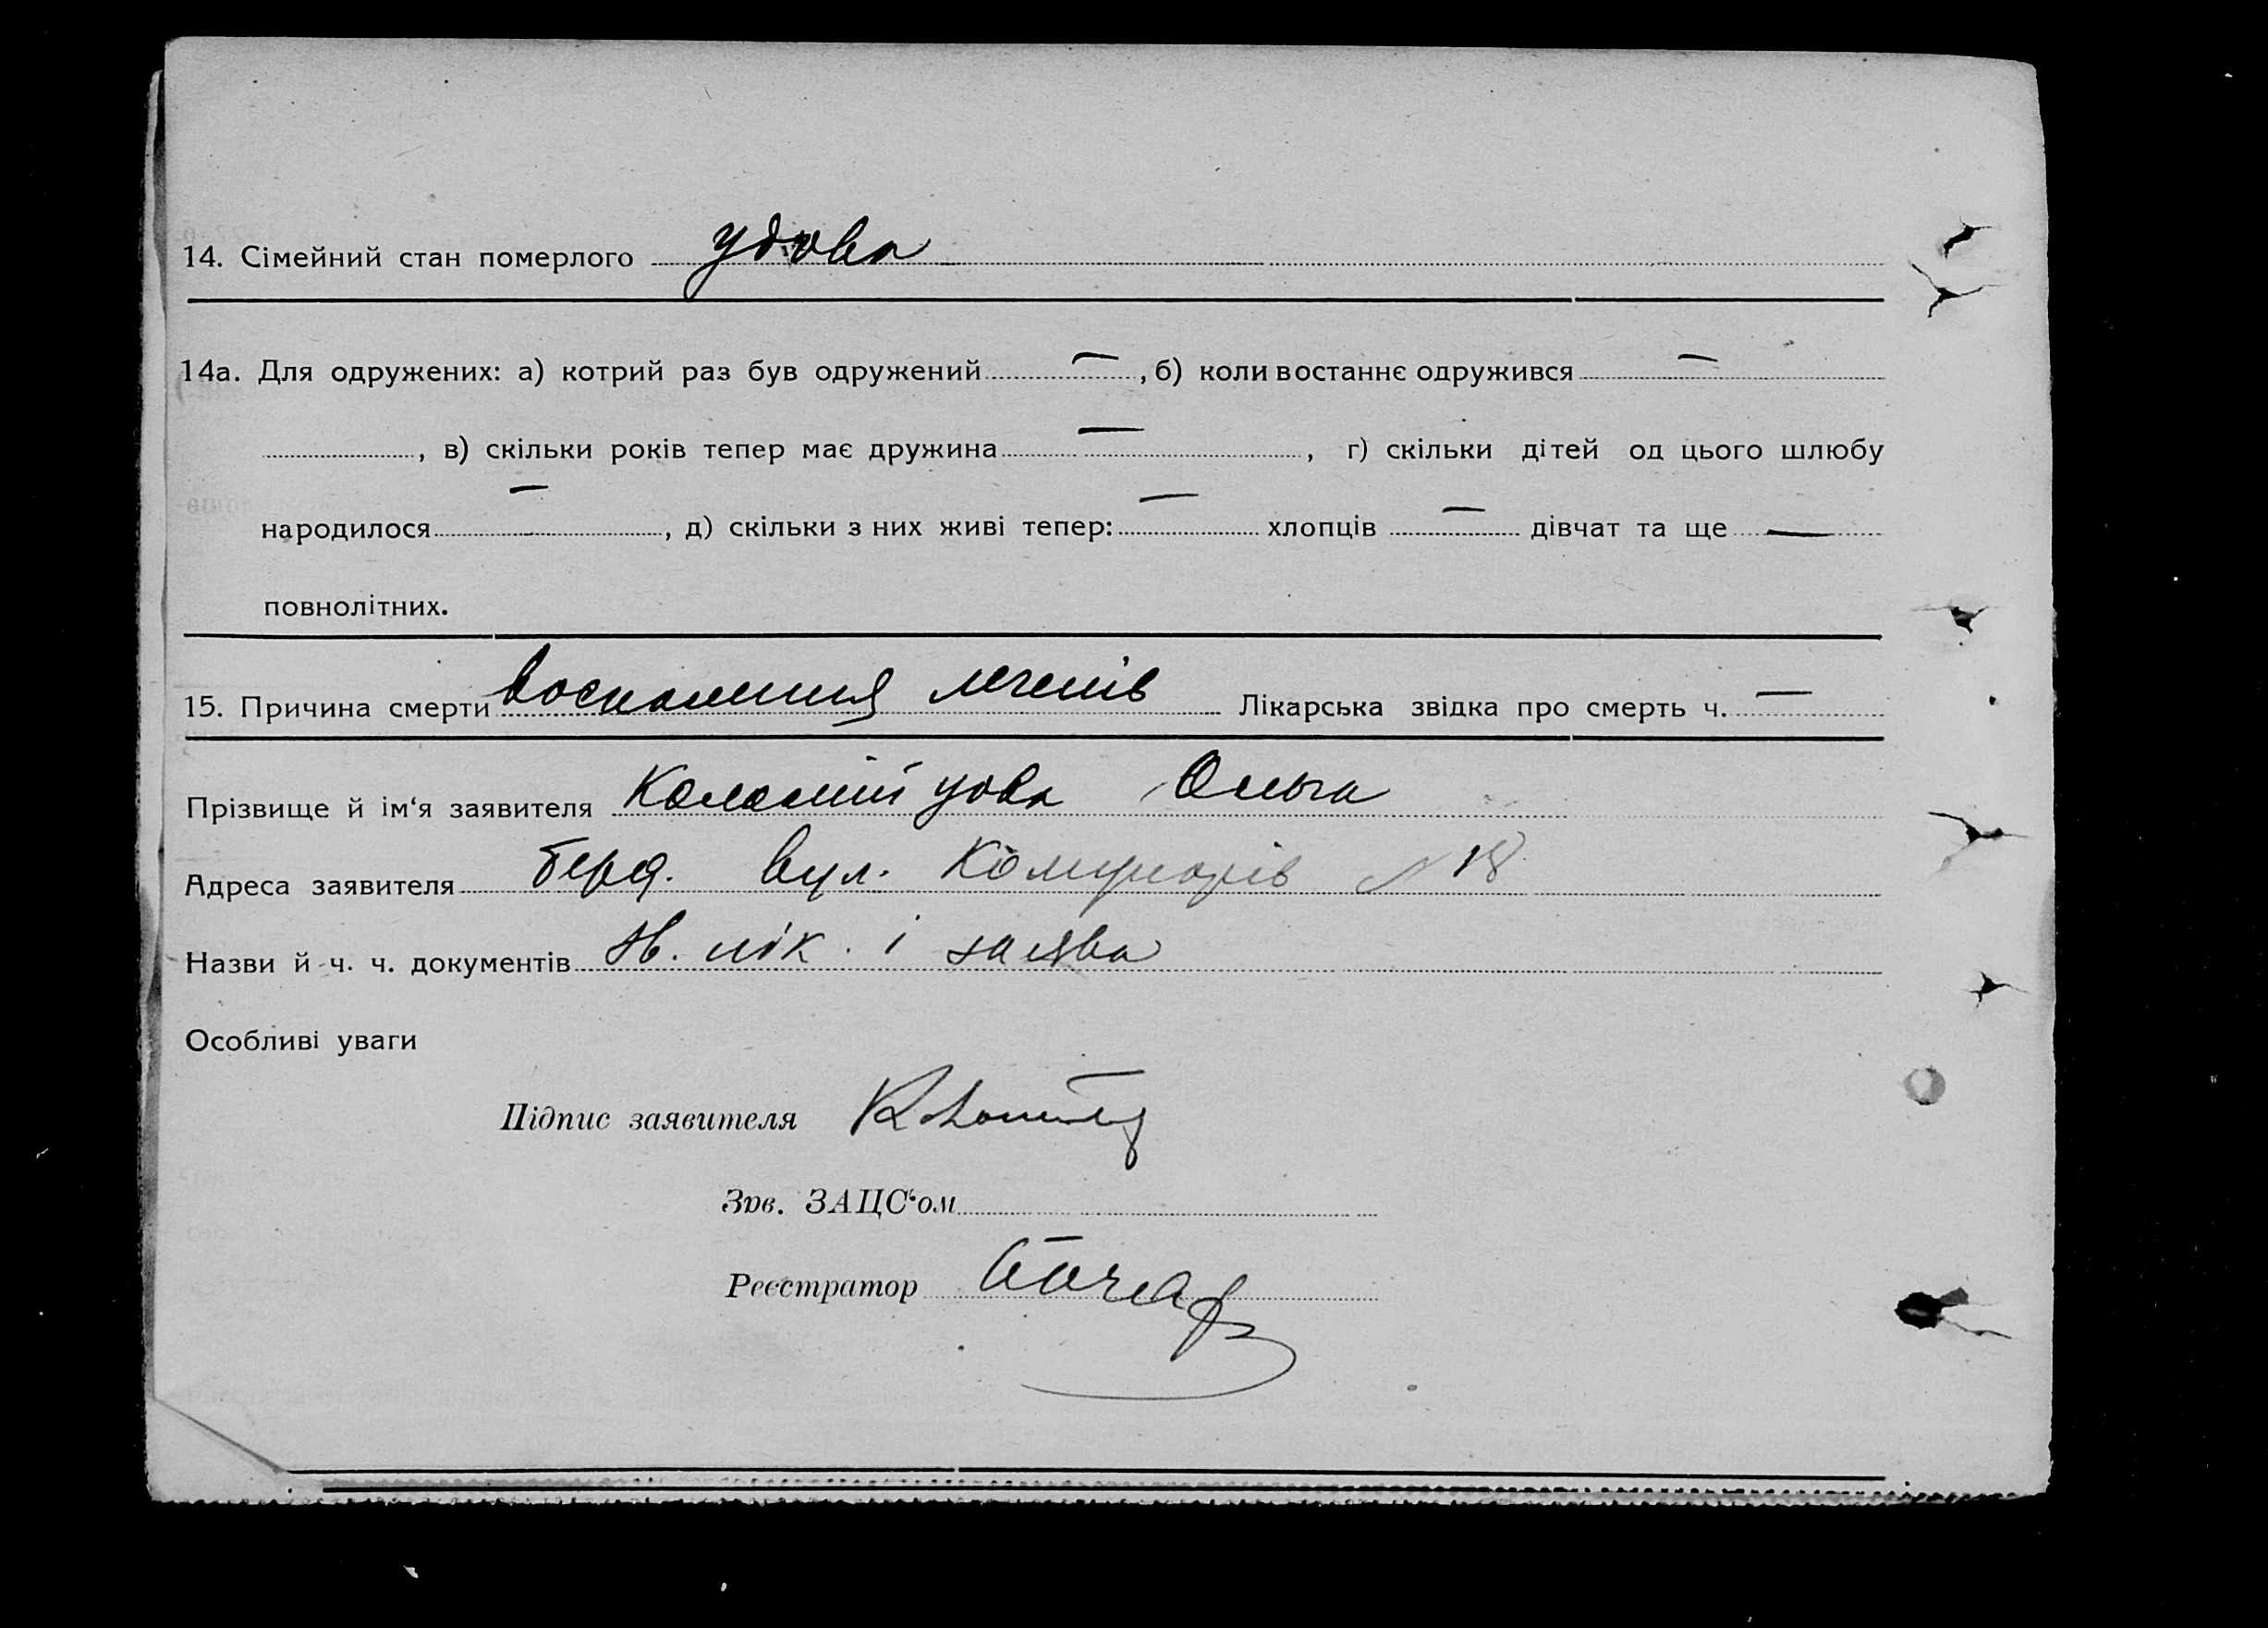 14. Сімейний стан померлого удова
14а. Для одружених: а) котрий раз був одружений — , б) коли востаннє одружився —
, в) скільки років тепер має дружина — , г) скільки дітей од цього шлюбу
народилося — , д) скільки з них живі тепер: — хлопців — дівчат та ще —
повнолітних.
15. Причина смерти воспаления легенів Лікарська звідка про смерть ч. —
Прізвище й ім‘я заявителя Коломійцова Ольга
Адреса заявителя Берд. вул. Комунарів № 18
Назви й ч. ч. документів лік. і заява
Особливі уваги
Підпис заявителя
Зав. ЗАЦС‘ом
Реєстратор